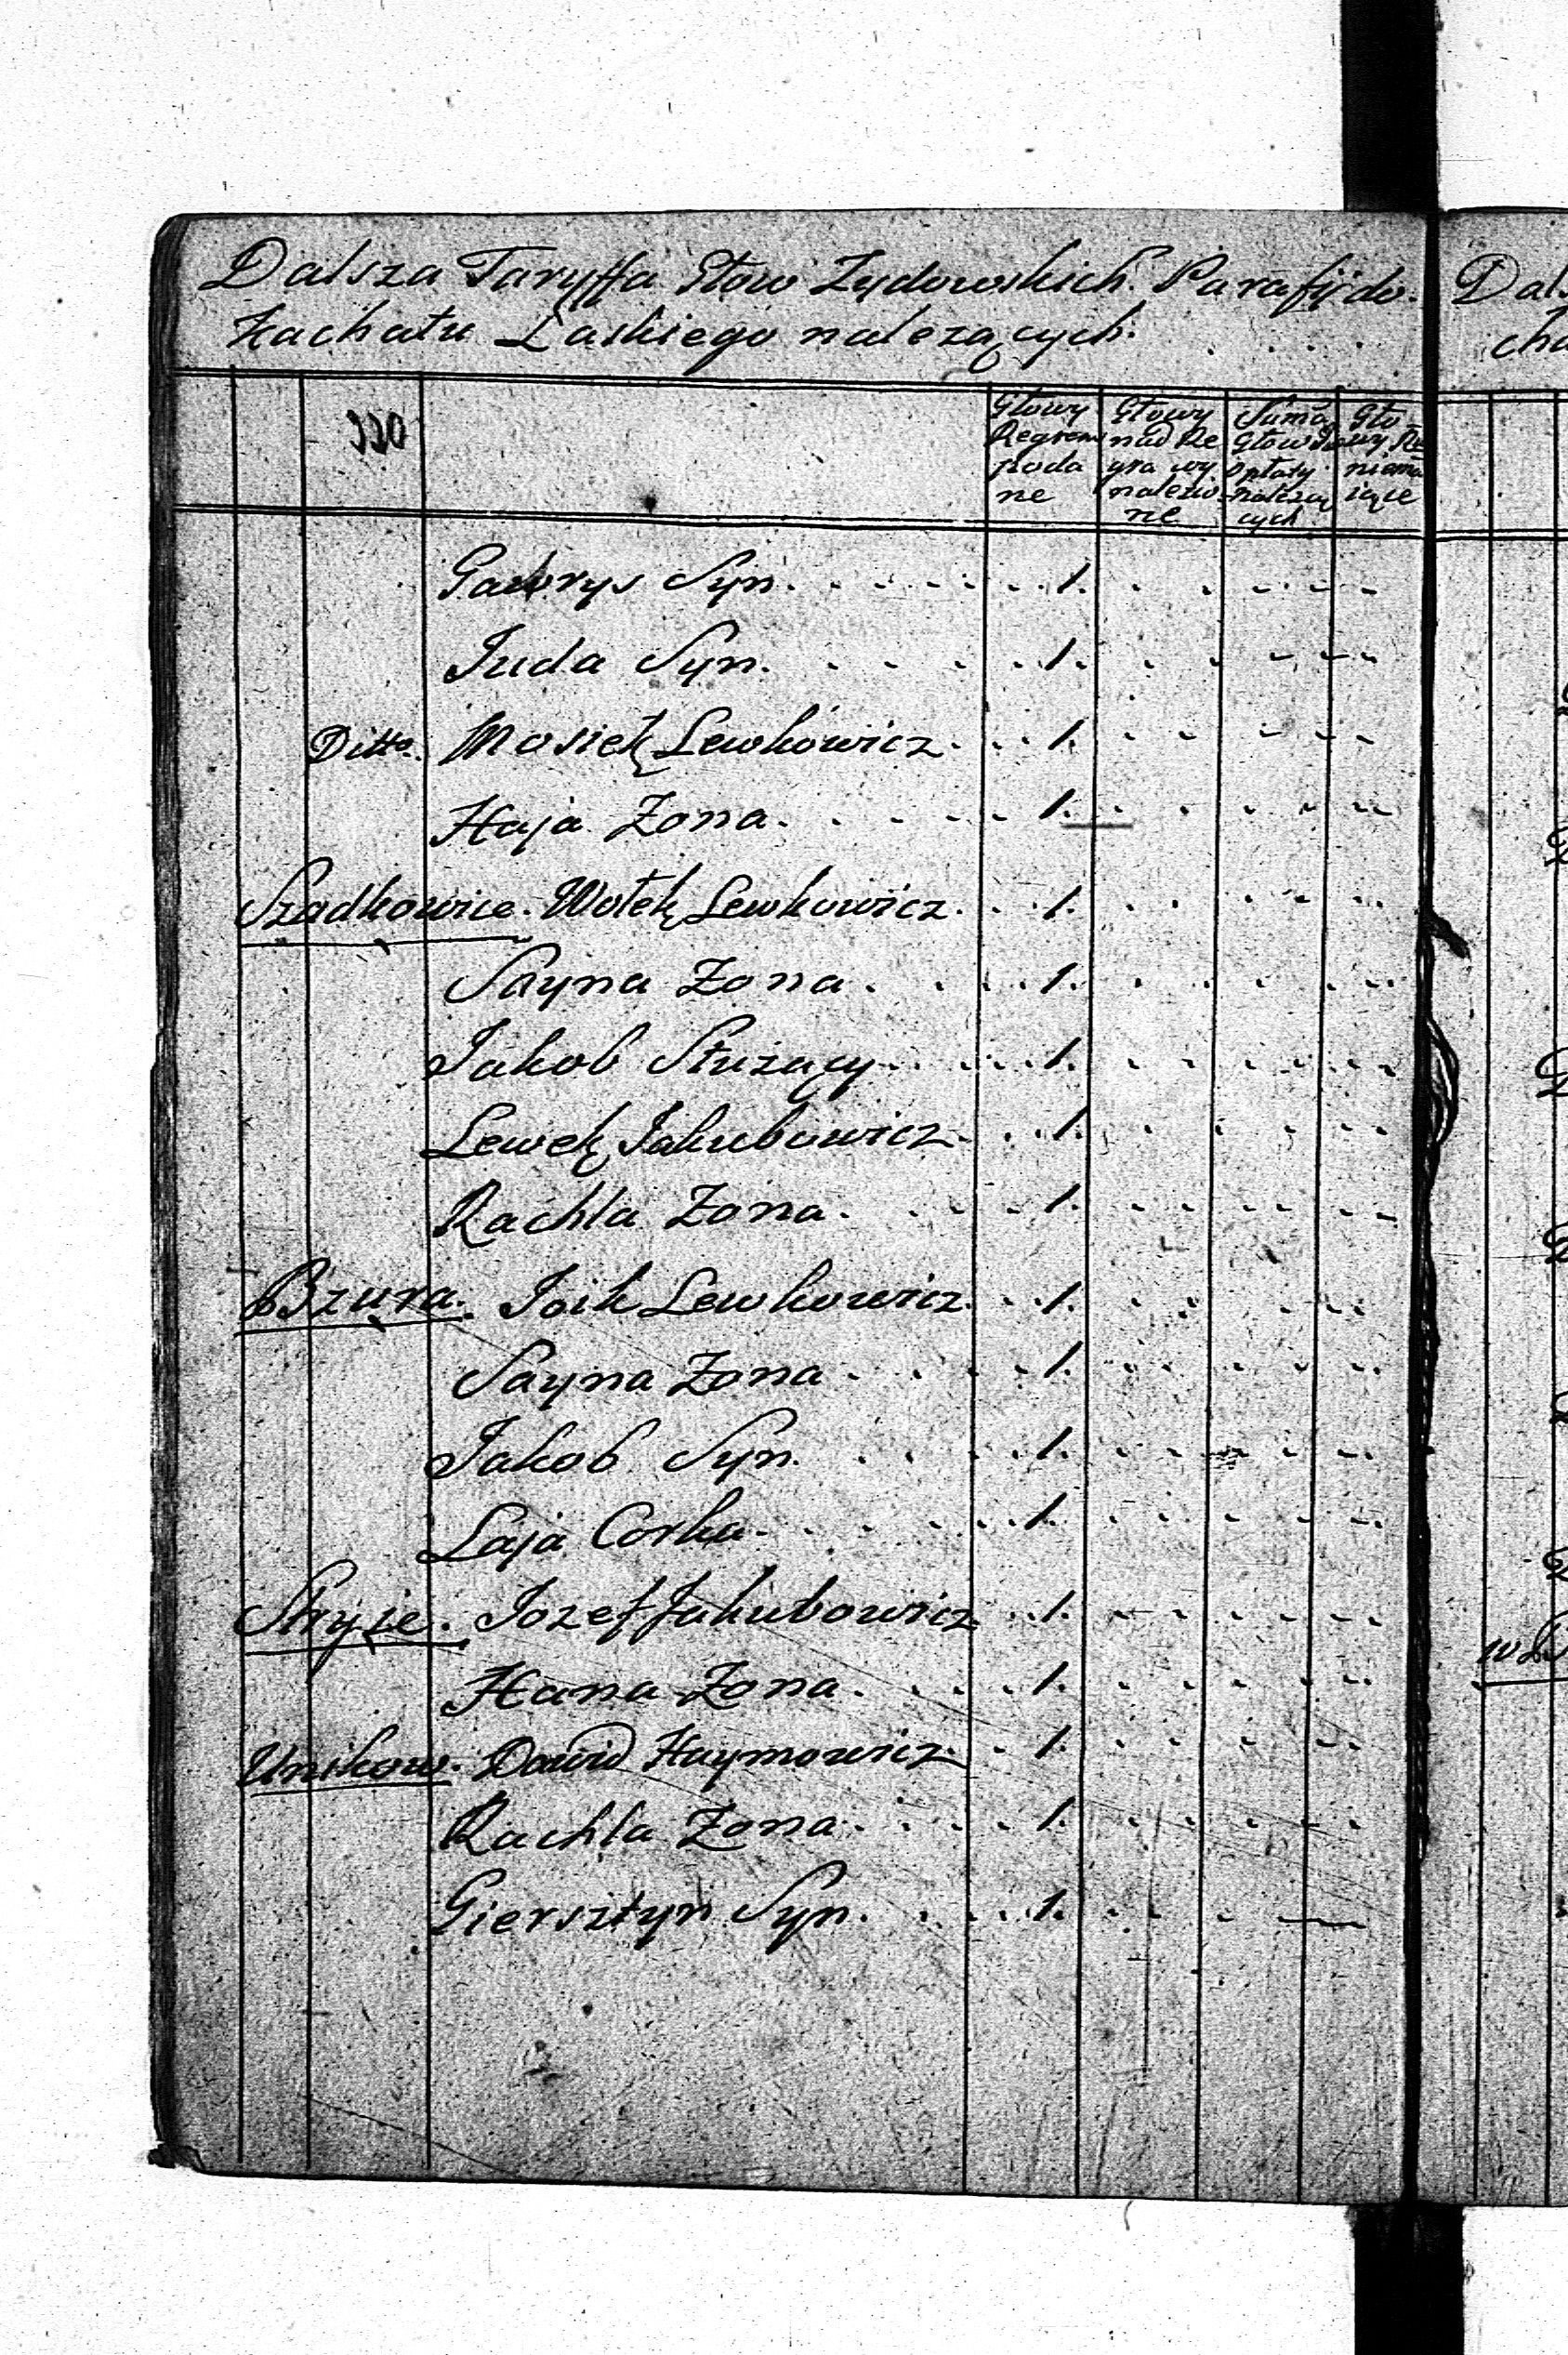 Dalsza Taryffa Głow Zydowskich. Parafji do.
Kachału Łaskiego nalezących.
Głowy Regrem poda ne
Głowy nad Re gra wy nalezio ne
Suma Głow Do opłaty nalezą cych
Gło wy Re niema iące
Gawrys Syn. 1.
Juda Syn. 1.
Ditto. Mosiek Lewkowicz. 1.
Haja Zona. 1.
Szadkowice. Wolek Lewkowicz. 1.
Sayna Zona. 1.
Jakob Służący. 1.
Lewek Jakubowicz. 1.
Rachla Zona. 1.
Bzura. Joik Lewkowicz. 1.
Sayna Zona. 1.
Jakob Syn. 1.
Laja Corka. 1.
Stryie. Jozef Jakubowicz 1.
Hana Zona. 1.
Unikow. Dawid Haymowicz. 1.
Rachla Zona. 1.
Giersztyn Syn. 1.